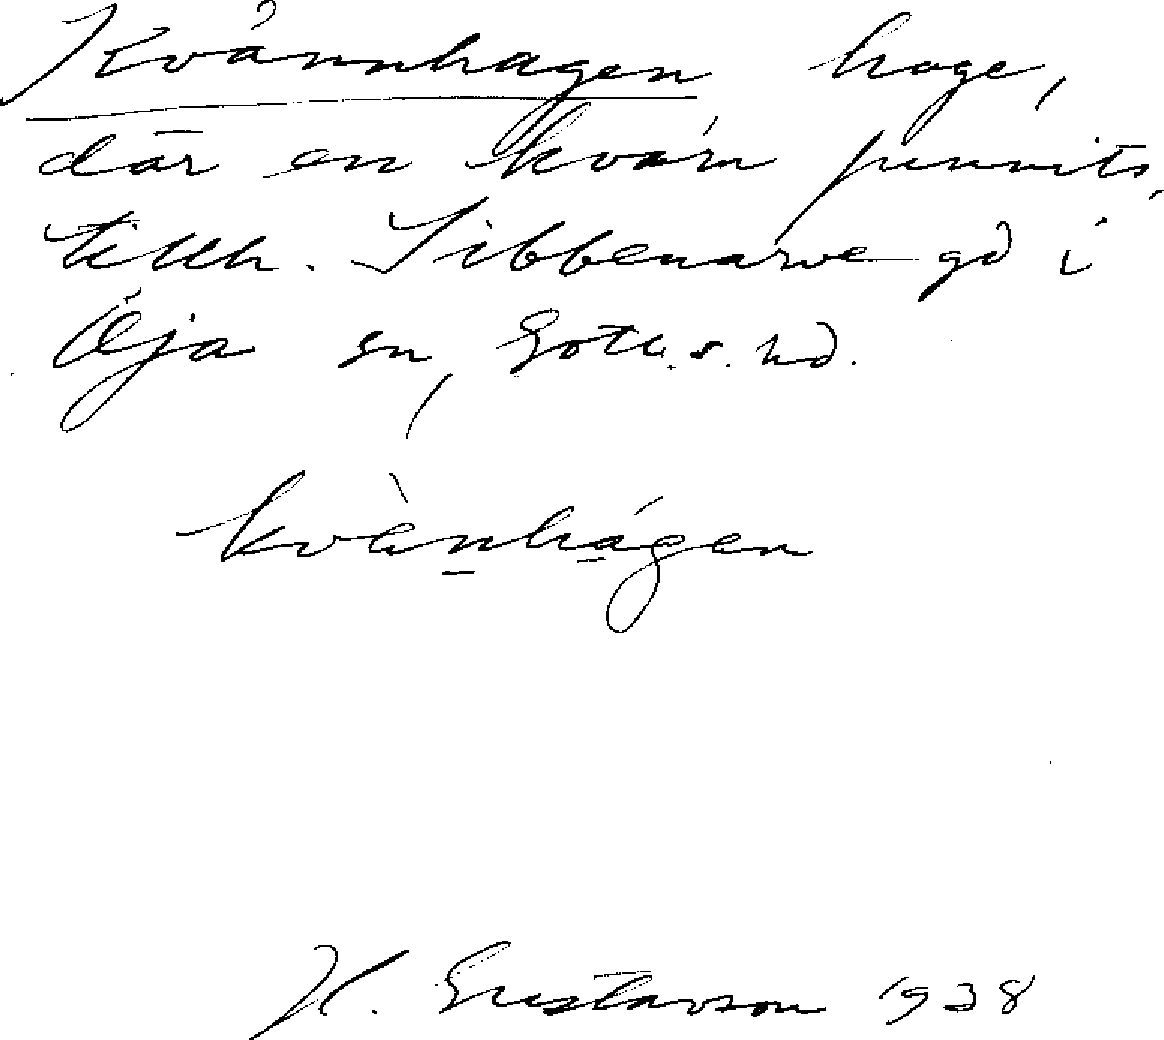 Kvännhagen hage,
där en kvarn funnits,
tillh. Sibbenarve gd i
Öja sn, Gotl. s. hd.
kvànhágen
H. Gustavson 1938